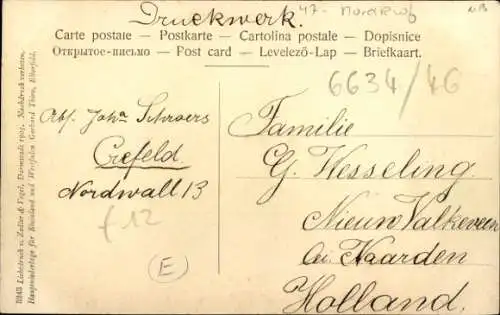 Druckwerk.
47- Nordrw
NB
Carte postale — Postkarte — Cartolina postale — Dopisnice
Открытое-письмо — Post card — Levelező-Lap — Briefkaart.
6634/46
Abs. Joh. Schroers
Crefeld.
Nordwall 13
f 12
E
Familie
G. Hesseling
Nieuw Valkeveen
bei Naarden
Holland.
Lichtdruck v. Zedler & Vogel, Darmstadt 1905. Nachdruck verboten.
Hauptniederlage für Rheinland und Westfalen Gerhard Thien, Elberfeld.